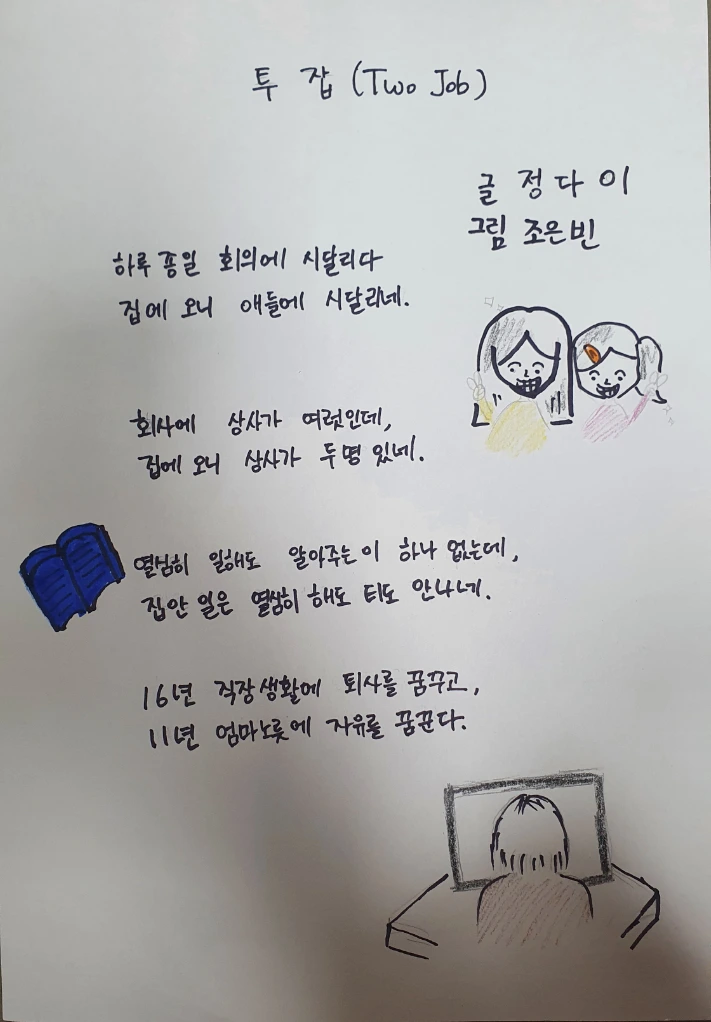 투 잡 (Two Job)
글 정다이
그림 조은빈
하루종일 회의에 시달리다
집에 오니 애들에 시달리네.
회사에 상사가 여럿인데,
집에 오니 상사가 두명 있네.
열심히 일해도 알아주는 이 하나 없는데,
집안 일은 열심히 해도 티도 안나네.
16년 직장생활에 퇴사를 꿈꾸고,
11년 엄마노릇에 자유를 꿈꾼다.